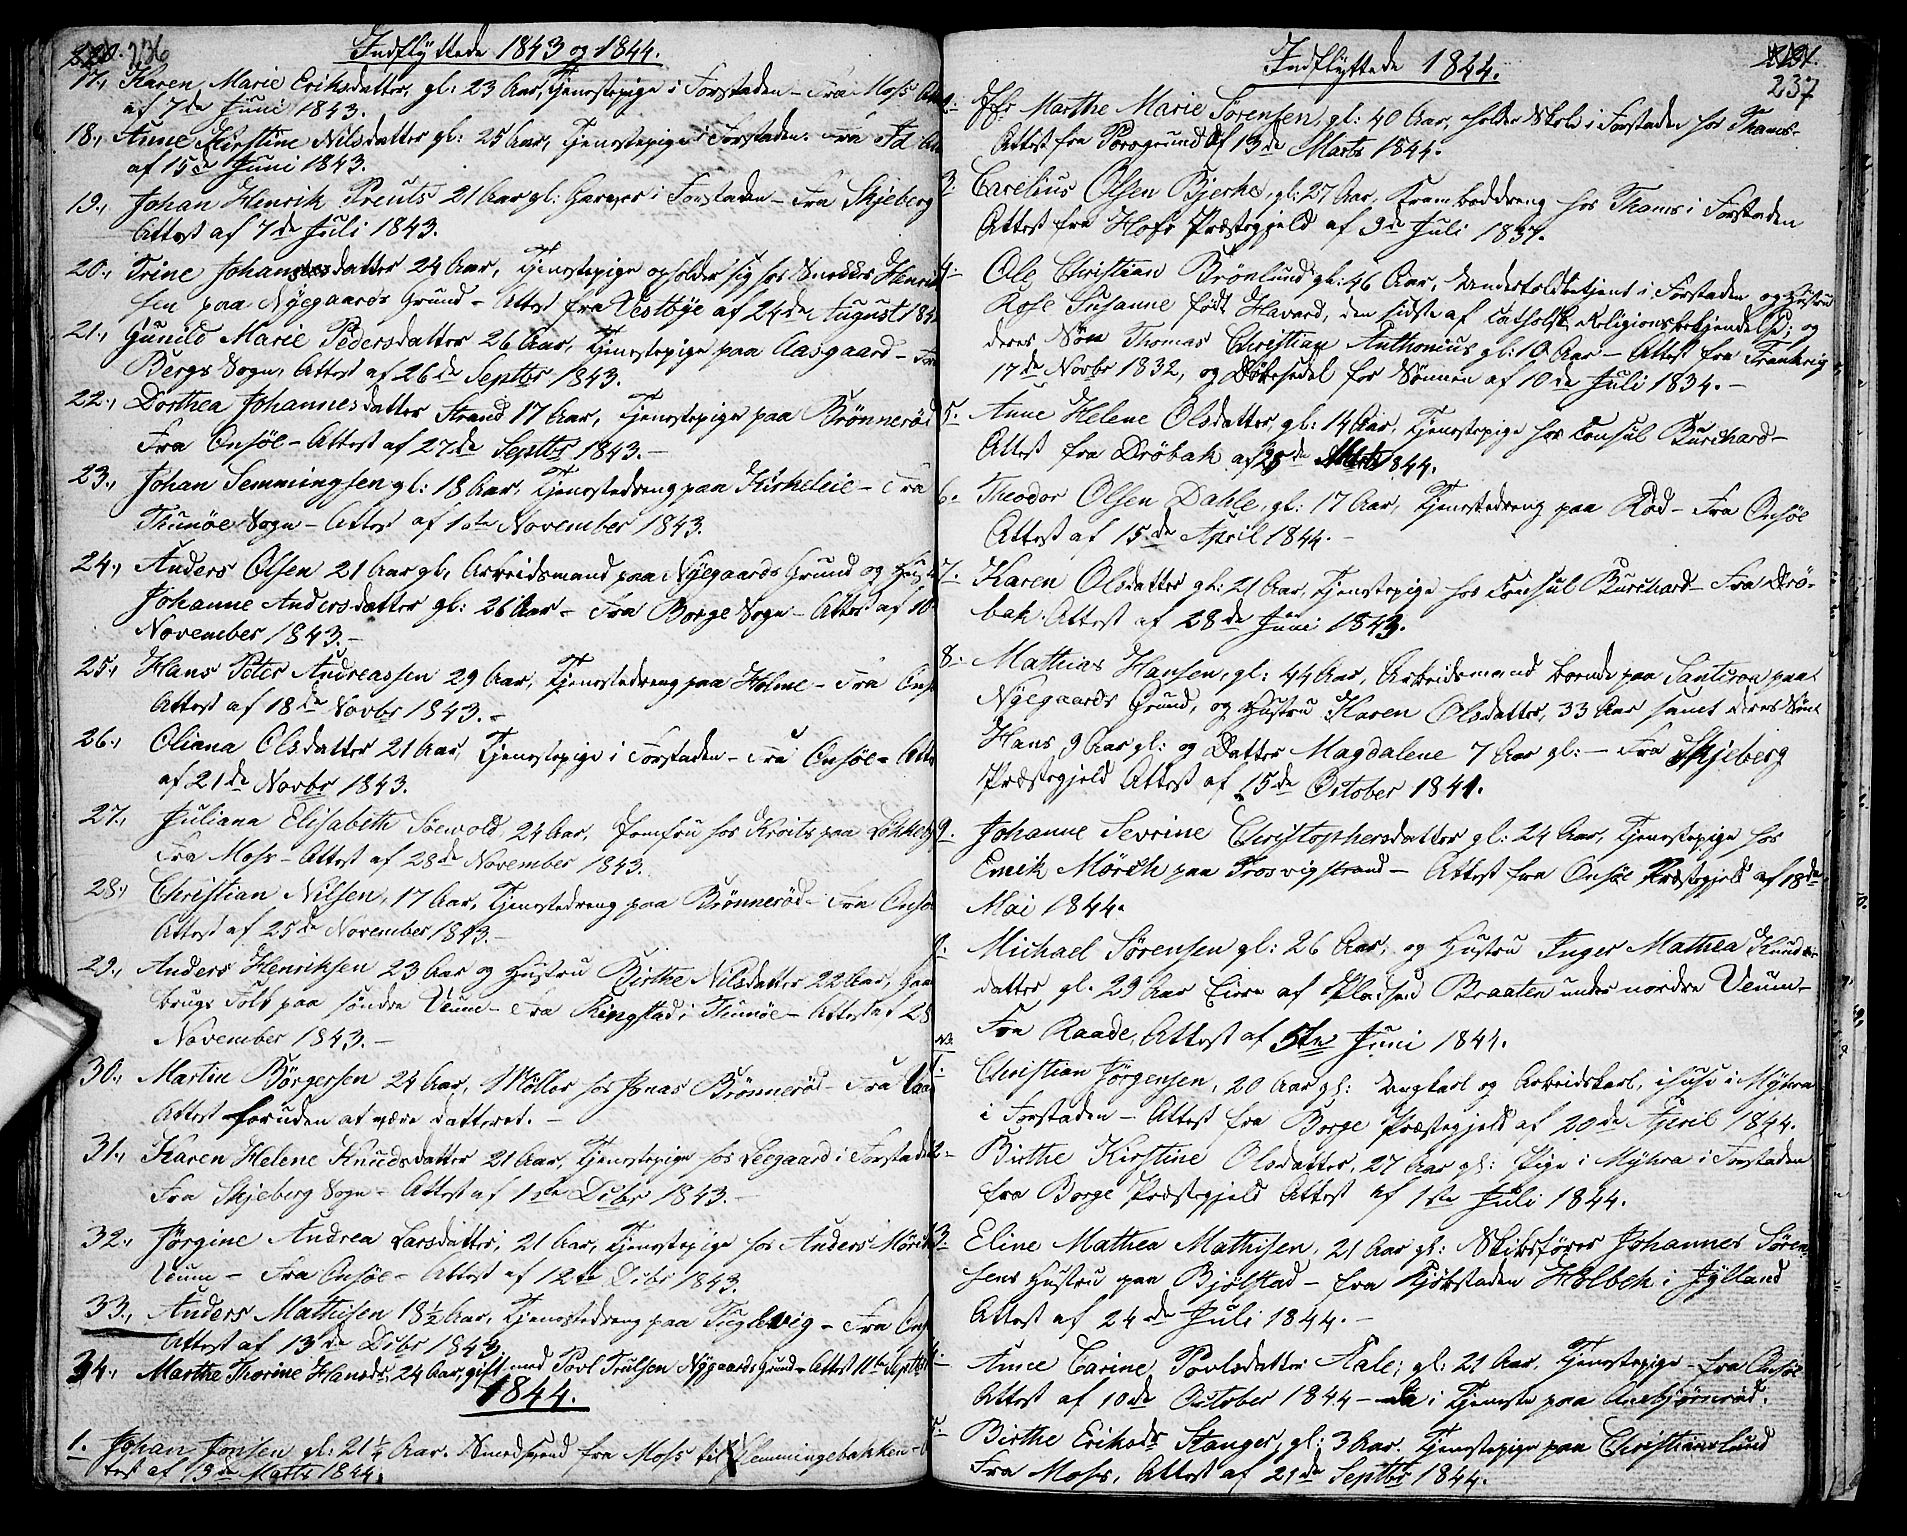 236
Indflyttede 1843 og 1844.
17., Karen Marie Eriksdatter, gl: 23 Aar, Tjenestepige i Forstaden – Fra Moss
af 7de Juni 1843.
18., Anne Kirstine Nilsdatter gl: 25 Aar, Tjenestepige i Forstaden. Fra Id
af 15de Juni 1843.
19., Johan Henrik Preuts 21 Aar gl: Garver i Forstaden – Fra Skjeberg
Attest af 7de Juli 1843.
20., Trine Johannesdatter 24 Aar, Tjenestepige opholder sig hos Snedker Henrik
sen paa Nyegaards Grund – Attest fra Vestbye af 24de August 184
21., Gunild Marie Pedersdatter 26 Aar, Tjenestepige paa Aasgaard – Fra
Bergs Sogn, Attest af 26de Septbr 1843.
22., Dorthea Johannesdatter Strand 17 Aar, Tjenestepige paa Brønnerød
Fra Onsøe – Attest af 27de Septbr 1843. –
23., Johan Semmingsen gl: 18 Aar, Tjenestedreng paa Kirkeleie – Fra
Thunøe Sogn – Attest af 1ste November 1843.
24., Anders Olsen 21 Aar gl, Arbeidsmand paa Nyegaards Grund og
Johanne Andersdatter gl: 26 Aar – Fra Borge Sogn – Attest af 10
November 1843. –
25., Hans Peter Andreassen 29 Aar, Tjenestedreng paa Holme – Fra Ons
Attest af 18de Novbr 1843. –
26., Oliana Olsdatter 21 Aar, Tjenestepige i Forstaden – Fra Onsøe – Atte
af 21de Novbr 1843.
27., Juliana Elisabeth Söewold, 24 Aar, Jomfru hos Kroits paa
Fra Moss – Attest af 28de November 1843.
28., Christian Nilsen, 17 Aar, Tjenestedreng paa Brønnerød – Fra Onsø
Attest af 25de November 1843. –
29., Anders Henriksen 23 Aar og Hustru Birthe Nilsdatter 22 Aar, Gaard
brugs Folk paa søndre Veum – Fra Ringstad i Thunøe – Attest af 28
November 1843. –
30., Martin Børgersen 24 Aar, Møller hos Jonas Brønnerød – Fra
Attest foruden at være datteret. –
31., Karen Helene Knudsdatter 21 Aar, Tjenestepige hos Leegaard i Forstad
Fra Skjeberg Sogn – Attest af 1ste Decbr 1843. –
32., Jørgine Andrea Larsdatter, 21 Aar, Tjenestepige hos Anders Mørich
Veum – Fra Onsøe – Attest af 12te Decbr 1843.
33., Anders Mathisen 18½ Aar, Tjenestedreng paa – Fra Ons
Attest af 13de Decbr 1843.
34., Marthe Thorine Hansdr, 24 Aar, gift med Povl Truelsen Nygaards Grund – Attest 11te Septbr
1844.
1. Johan Jonsen gl: 21½ Aar. Smedsvend fra Moss til Glemmingebakken –
test af 19de Marts 1844.
237
Indflyttede 1844.
Jfr Marthe Marie Sørensen, gl: 40 Aar, holder Skole i Forstaden hos Thams –
Attest fra Porsgrund af 13de Marts 1844.
3. Carelius Olsen Bjerke, gl: 27 Aar, Kramboddreng hos Thams i Forstaden
Attest fra Hofs Præstegjeld af 3de Juli 1837.
4. Ole Christian Brønlund gl: 46 Aar, Undertoldbetjent i Forstaden og Hustru
Rose Susanne født Havard, den sidste af catholsk Religionsbekjendelse; og
deres Søn Thomas Christian Anthonius gl: 10 Aar – Attest fra Frankrig
17de Novbr 1832, og Døbesedel for Sønnen af 10de Juli 1834. –
5. Anne Helene Olsdatter, gl: 14 Aar, Tjenestepige hos Consul Burchard –
Attest fra Drøbak af 28de Marts 1844.
6. Theodor Olsen Dahle, gl: 17 Aar, Tjenestedreng paa Rød – Fra Onsøe
Attest af 15de April 1844. –
7. Karen Olsdatter gl: 21 Aar, Tjenestepige hos Consul Burchard – Fra Drø-
bak. Attest af 28de Juni 1843.
8. Mathias Hansen, gl: 44 Aar, Arbeidsmand boende paa paa
Nyegaards Grund, og Hustru Karen Olsdatter, 33 Aar samt deres Søn
Hans 9 Aar gl: og Datter Magdalene 7 Aar gl: – Fra Skjeberg
Præstegjeld Attest af 15de October 1841.
9. Johanne Sevrine Christophersdatter gl: 24 Aar, Tjenestepige hos
Emik Mørch paa Trosvigstrand – Attest fra Onsøe Præstegjeld af 18de
Mai 1844.
Michael Sørensen gl: 26 Aar, og Hustru Inger Mathea Knuds-
datter gl. 29 Aar Eiere af Pladsen Braaten under nordre Veum –
Fra Raade, Attest af 5te Juni 1844.
Christian Jörgensen, 20 Aar gl: Ungkarl og Arbeidskarl, i Myhra
i Forstaden – Attest fra Borge Præstegjeld af 20de April 1844.
2. Birthe Kirstine Olsdatter, 27 Aar gl: Pige i Myhra i Forstaden
fra Borge Præstegjeld Attest af 1ste Juli 1844.
3. Eline Mathea Mathisen, 21 Aar gl: Skibsfører Johannes Søren
sens Hustru paa Bjølstad – fra Kjøbstaden Holbek i Jylland
Attest af 24de Juli 1844. –
Anne Carine Povlsdatter Aale, gl: 21 Aar, Tjenestepige – fra Onsøe
Attest af 10de October 1844 – i Tjeneste paa Ambjørnrød.
5. Birthe Eriksdr Stanger, gl: 3 Aar. Tjenestepige paa Christianslund
Fra Moss, Attest af 21de Septbr 1844.